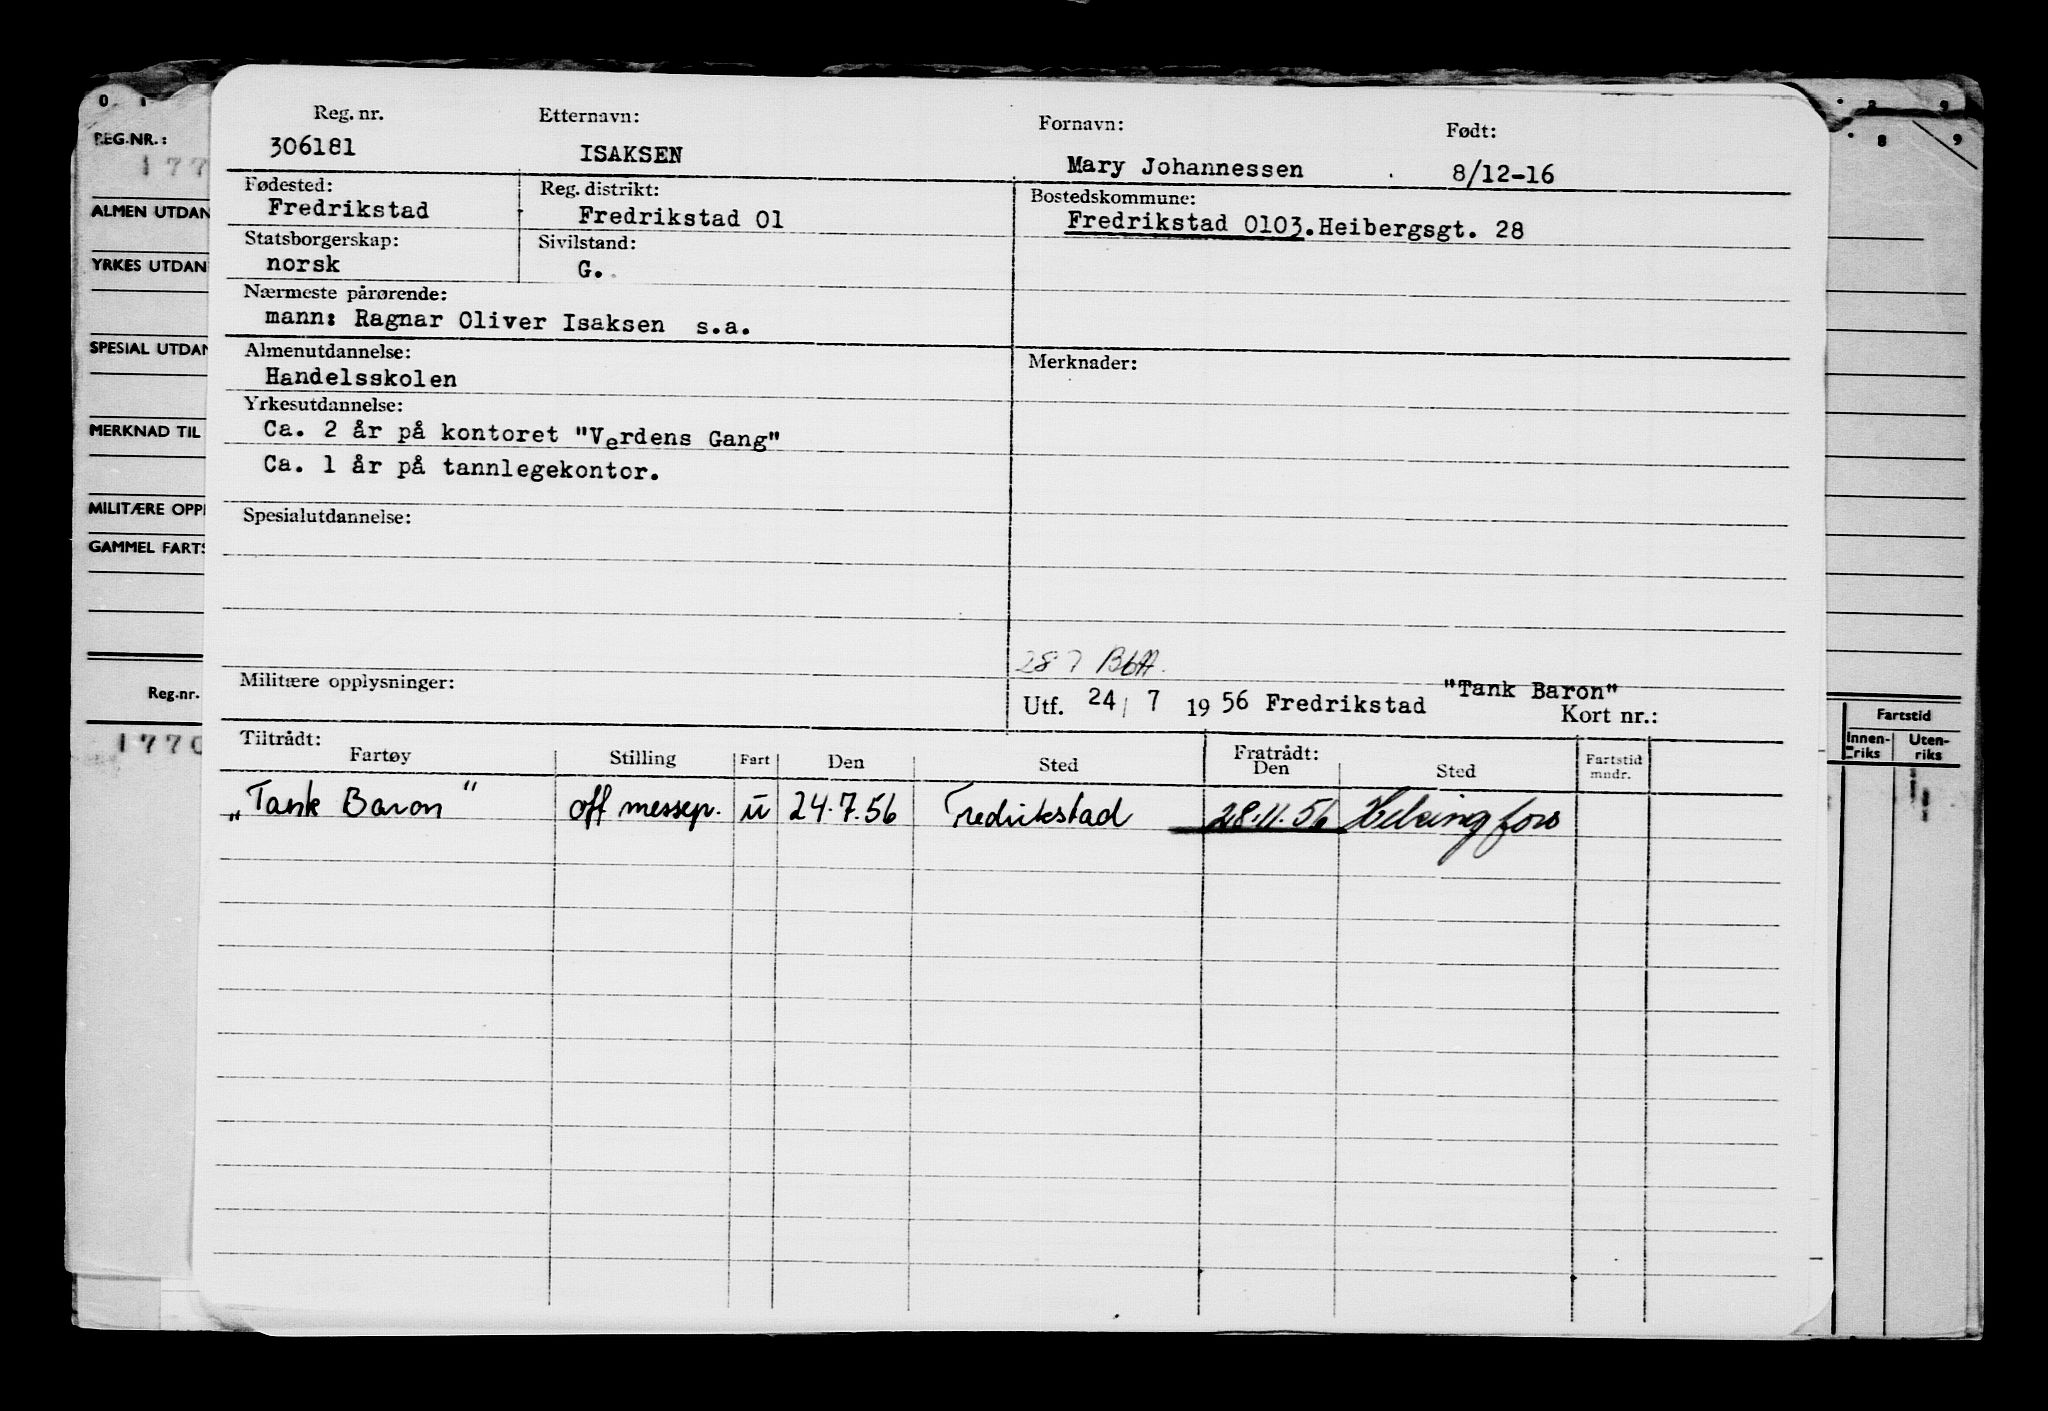 Reg. nr. Etternavn: Fornavn: Født:
306181 ISAKSEN Mary Johannessen 8/12-16
Fødested: Reg. distrikt: Bostedskommune:
Fredrikstad Fredrikstad 01 Fredrikstad 0103.Heibergsgt. 28
Statsborgerskap: Sivilstand:
norsk G.
Nærmeste pårørende:
mann: Ragnar Oliver Isaksen s.a.
Almenutdannelse: Merknader:
Handelsskolen
Yrkesutdannelse:
Ca. 2 år på kontoret "Verdens Gang"
Ca. 1 år på tannlegekontor.
Spesialutdannelse:
28 7
Militære opplysninger: "Tank Baron"
Utf. 24/ 7 1956 Fredrikstad Kort nr.:
Tiltrådt: Fratrådt:
Fartøy Stilling Fart Den Sted Den Sted Fartstid mndr.
„Tank Baron" off messep. u 24.7.56 Fredrikstad 28.11.56 Helsingfors
REG.NR.:
177
ALMEN UTDAN
YRKES UTDAN
SPESIAL UTDAN
MERKNAD TIL
MILITÆRE OPPI
GAMMEL FARTS
Reg.nr.
1770
8 9
Fartstid
Innen-riks Uten-riks